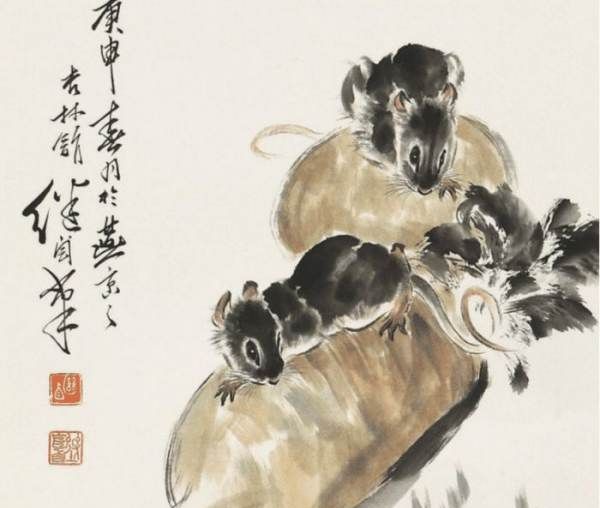 庚申春月於燕京之
吉林館
继卣筆